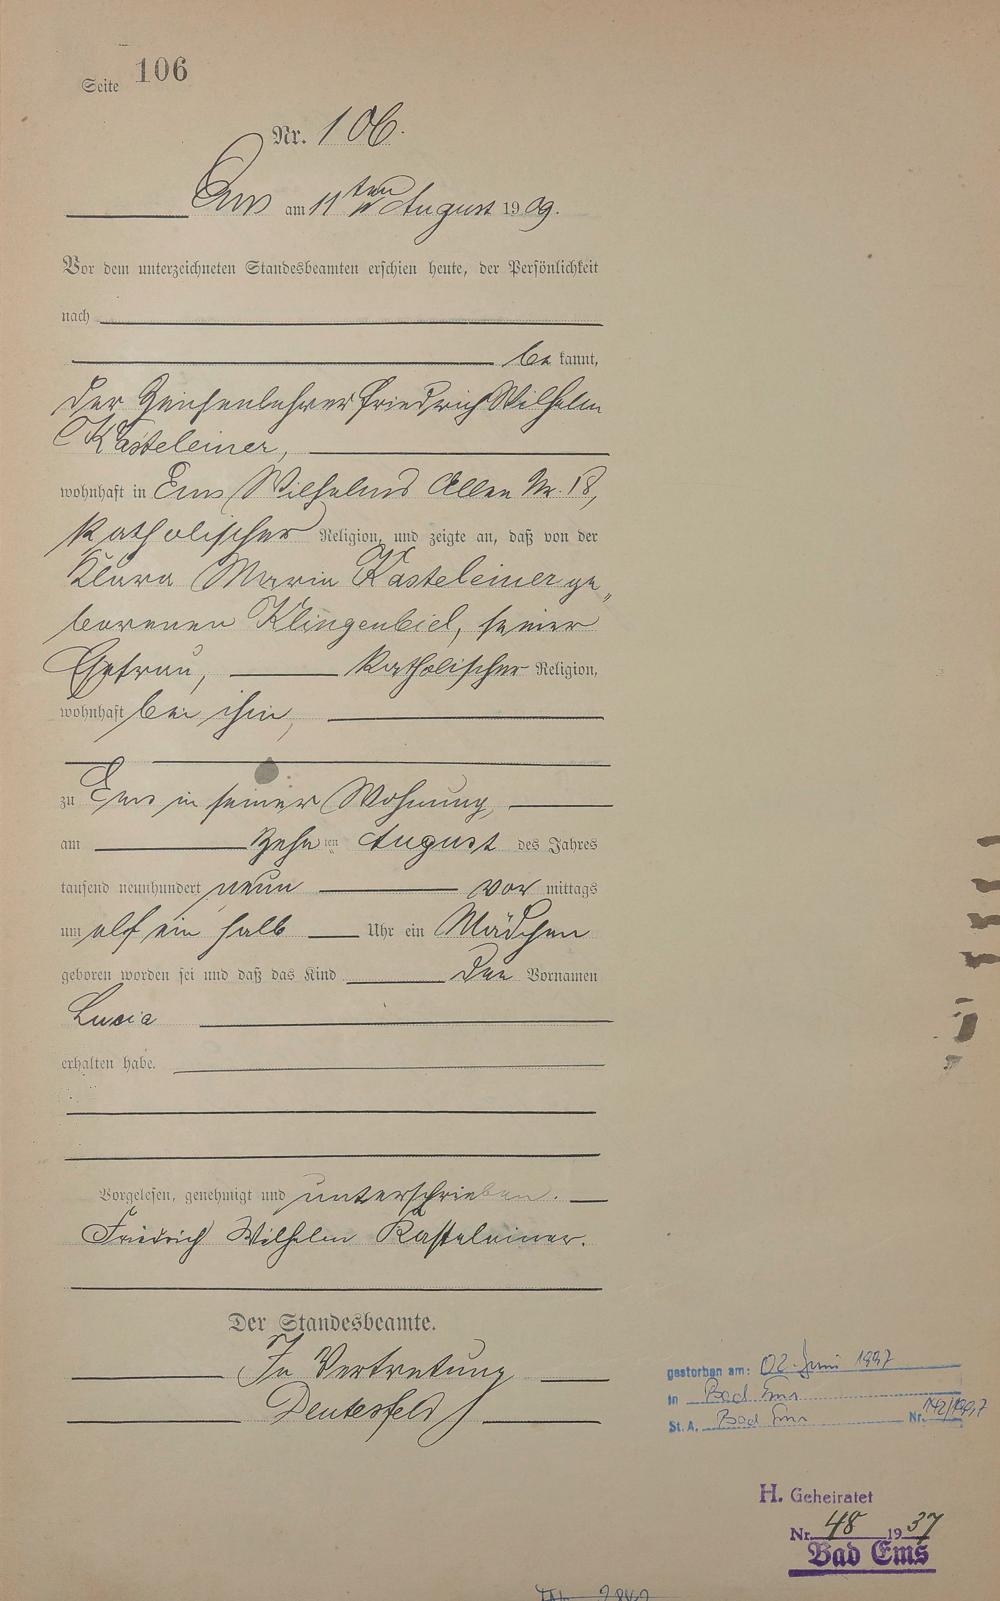 Seite 106
Nr. 106.
Ems am 11ten August 1909.
Vor dem unterzeichneten Standesbeamten erschien heute, der Persönlichkeit
nach
bekannt,
der Zeichenlehrer Friedrich Wilhelm
Kasteleiner,
wohnhaft in Ems Wilhelms Allee Nr. 18,
katholischer Religion, und zeigte an, daß von der
Klara Maria Kasteleiner ge„
borenen Klingenbiel, seiner
Ehefrau, katholischer Religion,
wohnhaft bei ihm,
zu Ems in seiner Wohnung,
am zehnten August des Jahres
tausend neunhundert neun vormittags
um elf ein halb Uhr ein Mädchen
geboren worden sei und daß das Kind den Vornamen
Lucia
erhalten habe.
Vorgelesen, genehmigt und unterschrieben.
Friedrich Wilhelm Kasteleiner.
Der Standesbeamte.
In Vertretung
gestorben am: 02. Juni 1997
in Bad Ems
St. A. Bad Ems Nr. 142/1997
H. Geheiratet
Nr. 48 1937
Bad Ems